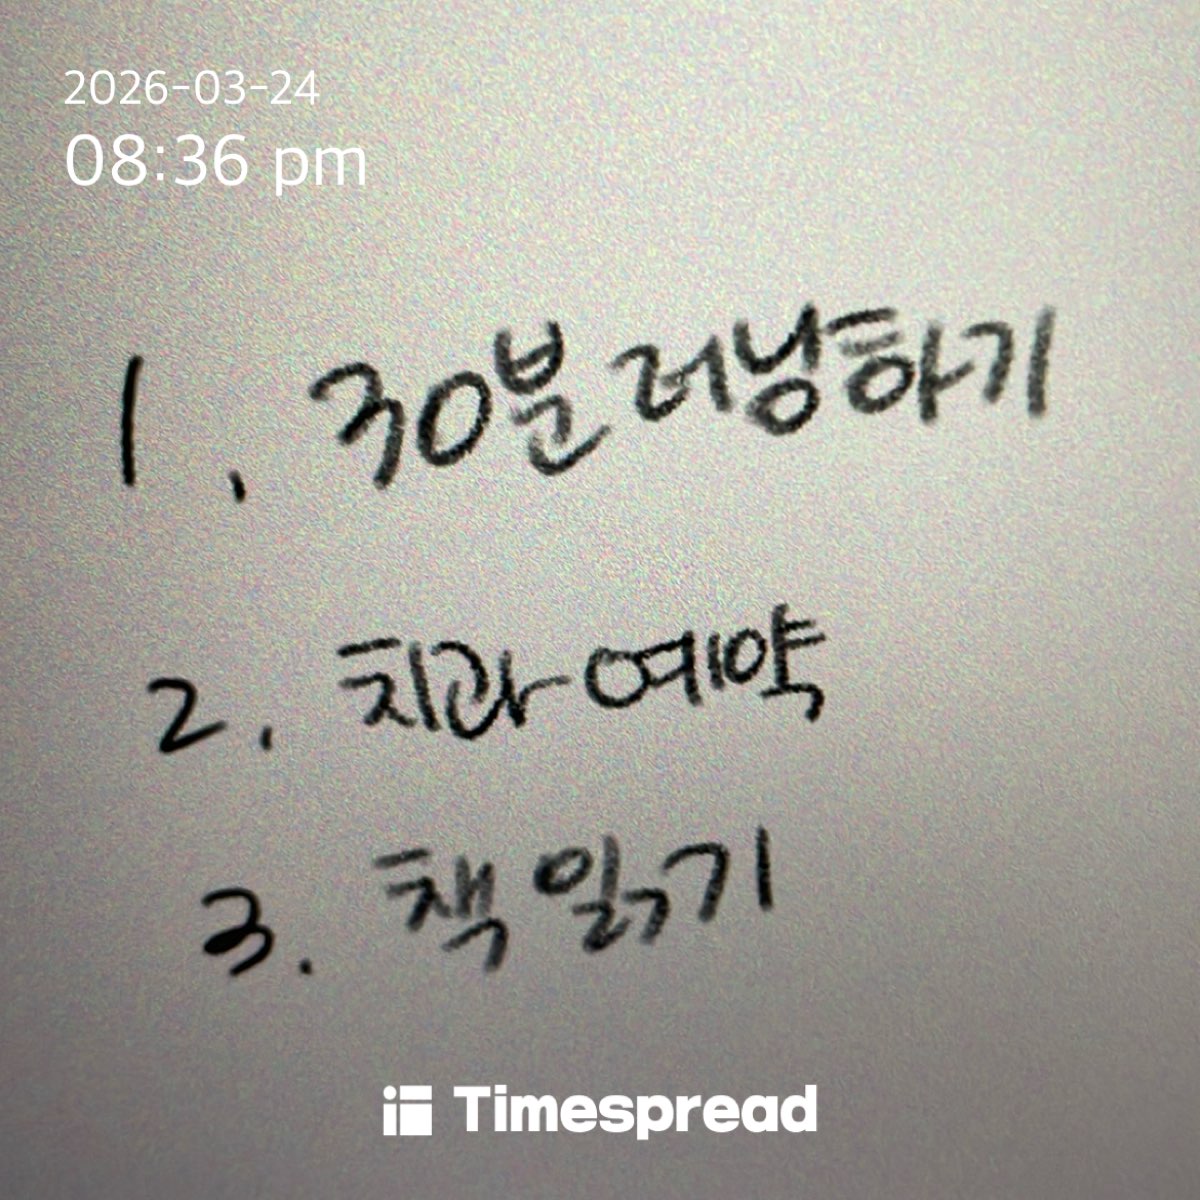 2026-03-24
08:36 pm
1. 30분 러닝하기
2. 치과 예약
3. 책 읽기
Timespread